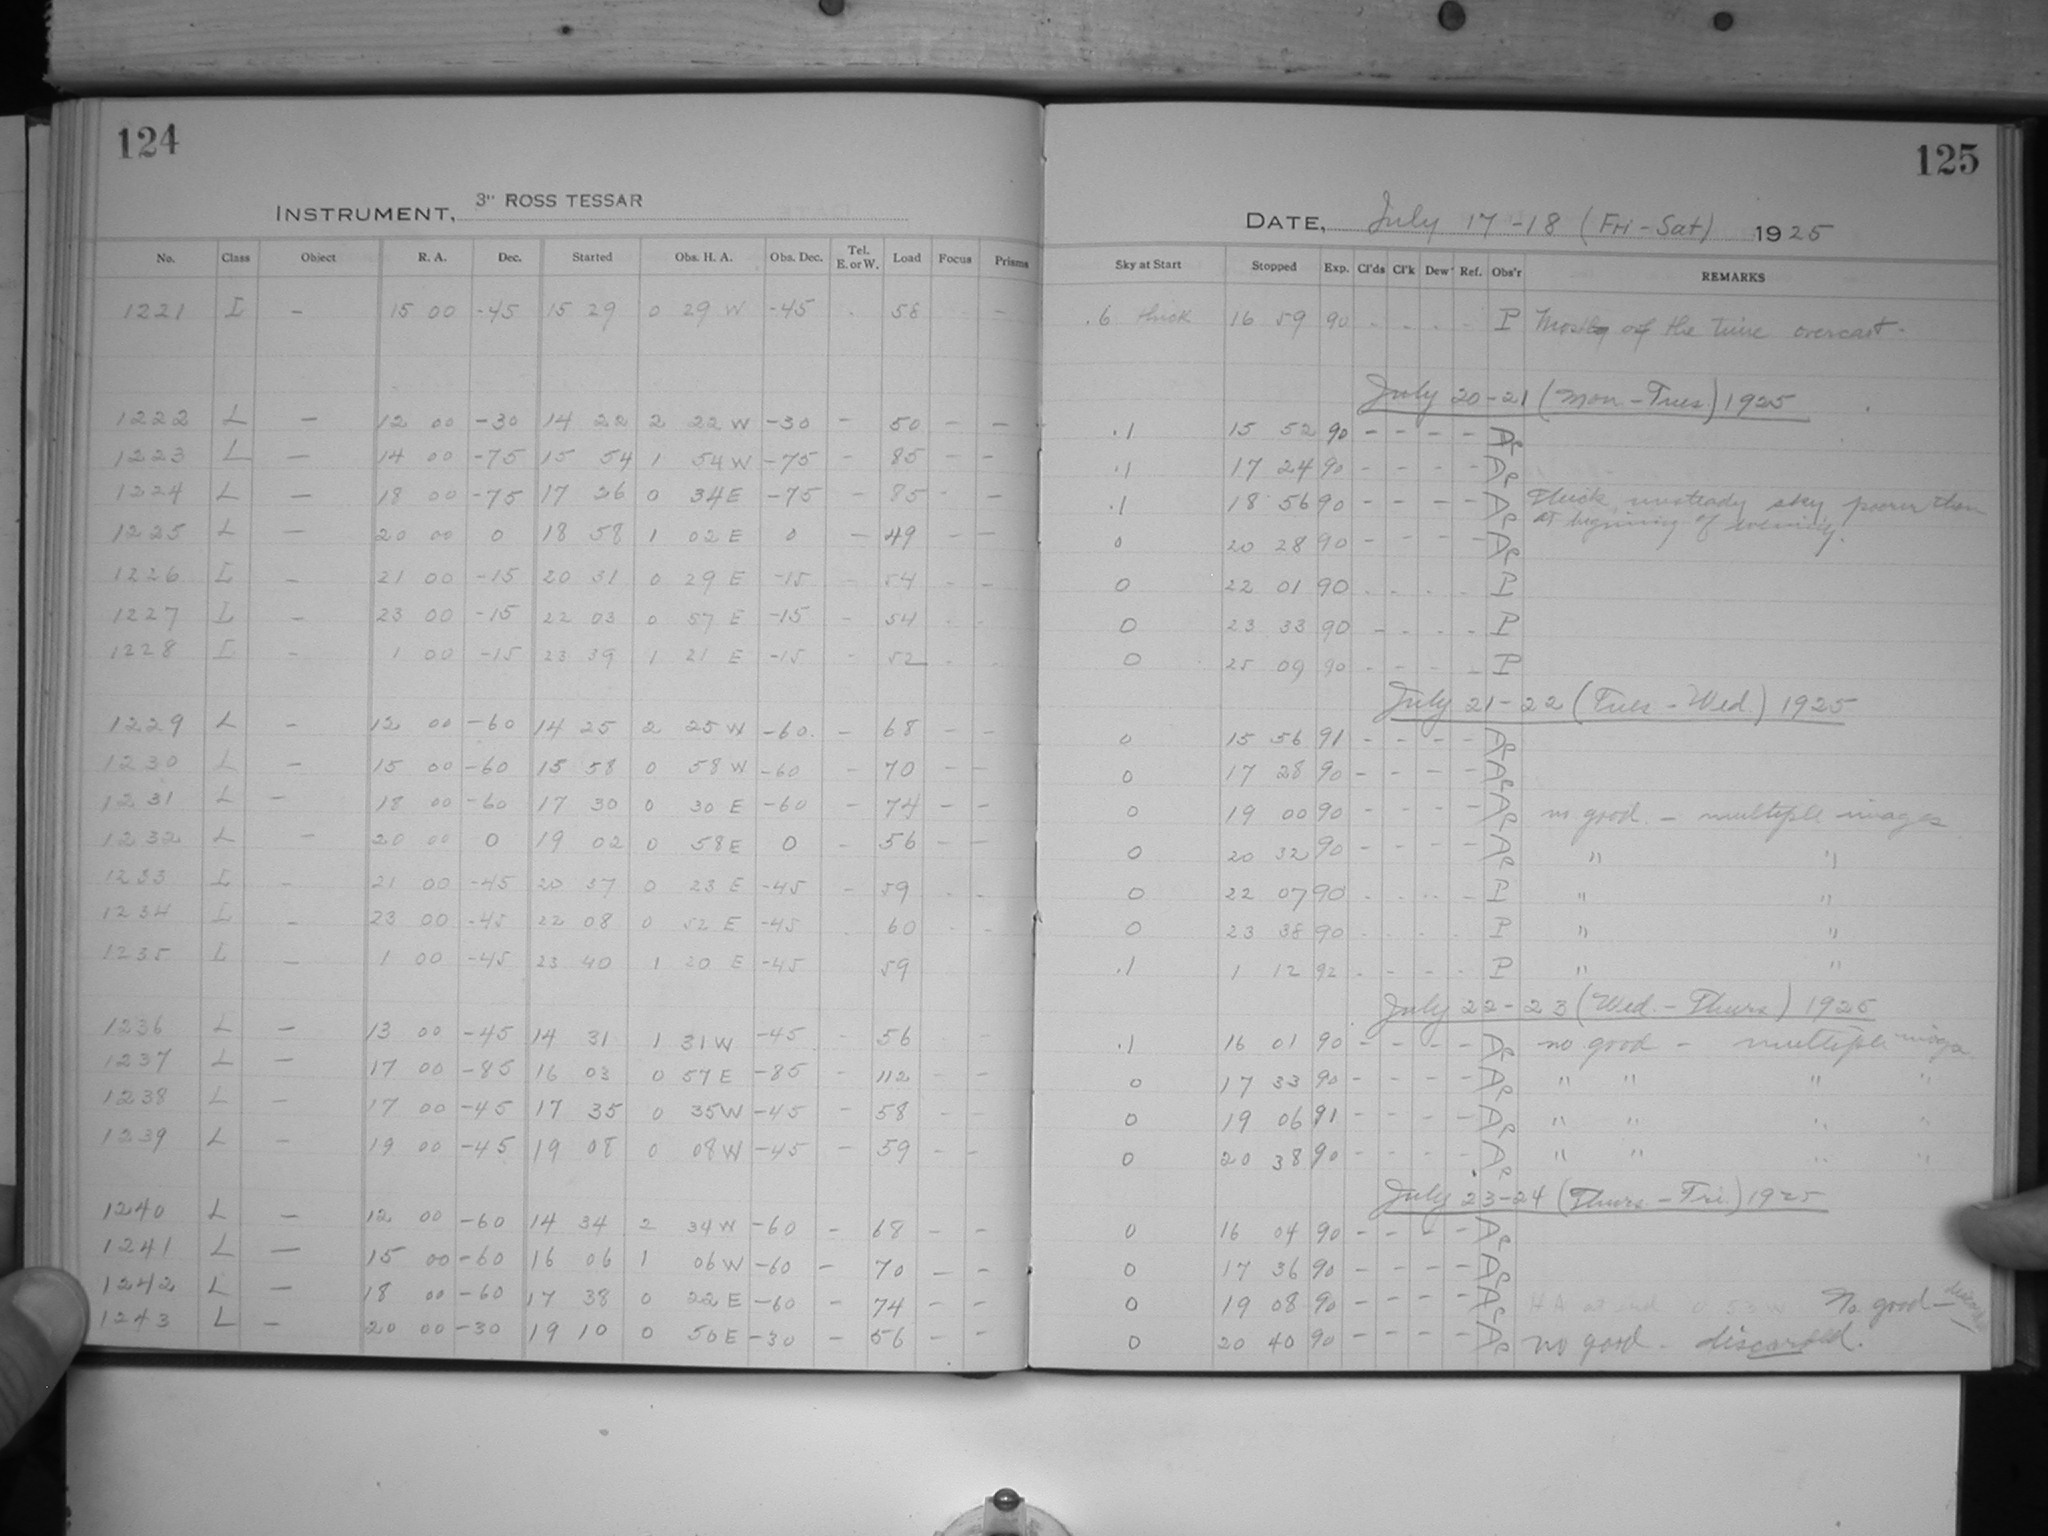 124
INSTRUMENT, 3" ROSS TESSAR
No. Class Object R. A. Dec. Started Obs. H. A. Obs. Dec. Tel. E. or W. Load Focus Prisms
1221 L – 15 00 -45 15 29 0 29 W -45 58 –
1222 L – 12 00 -30 14 22 2 22 W -30 – 50 – –
1223 L – 14 00 -75 15 54 1 54 W -75 – 85 – –
1224 L – 18 00 -75 17 26 0 34 E -75 – 85 – –
1225 L – 20 00 0 18 58 1 02 E 0 – 49 – –
1226 L – 21 00 -15 20 31 0 29 E -15 – 54 – –
1227 L – 23 00 -15 22 03 0 57 E -15 – 54 - -
1228 L – 1 00 -15 23 39 1 21 E -15 - 52 - -
1229 L – 12 00 -60 14 25 2 25 W -60 – 68 – –
1230 L – 15 00 -60 15 58 0 58 W -60 – 70 – –
1231 L – 18 00 -60 17 30 0 30 E -60 – 74 – –
1232 L – 20 00 0 19 02 0 58 E 0 – 56 – –
1233 L – 21 00 -45 20 37 0 23 E -45 – 59 - -
1234 L – 23 00 -45 22 08 0 52 E -45 60 - -
1235 L – 1 00 -45 23 40 1 20 E -45 59
1236 L – 13 00 -45 14 31 1 31 W -45 – 56 - -
1237 L – 17 00 -85 16 03 0 57 E -85 – 112 – –
1238 L – 17 00 -45 17 35 0 35 W -45 – 58 – –
1239 L – 19 00 -45 19 08 0 08 W -45 – 59 – –
1240 L – 12 00 -60 14 34 2 34 W -60 – 68 – –
1241 L – 15 00 -60 16 06 1 06 W -60 – 70 – –
1242 L – 18 00 -60 17 38 0 22 E -60 – 74 – –
1243 L – 20 00 -30 19 10 0 50 E -30 – 56 – –
125
DATE, July 17-18 (Fri-Sat) 1925
Sky at Start Stopped Exp. Cl'ds Cl'k Dew Ref. Obs'r REMARKS
.6 thick 16 59 90 - - - - P Mostly of the time overcast.
July 20-21 (Mon-Tues) 1925
.1 15 52 90 – – – –
.1 17 24 90 – – – –
.1 18 56 90 – – – – Thick, unsteady sky poorer than
at beginning of evening.
0 20 28 90 – – – –
0 22 01 90 - - - - P
0 23 33 90 – - - - P
0 25 09 90 - - - – P
July 21-22 (Tues-Wed) 1925
0 15 56 91 – – – –
0 17 28 90 – – – –
0 19 00 90 – – – – no good – multiple images
0 20 32 90 – – – – " "
0 22 07 90 - - - – P " "
0 23 38 90 - - - - P " "
.1 1 12 92 - - - - P " "
July 22-23 (Wed-Thurs) 1925
.1 16 01 90 – – – – no good – multiple image
0 17 33 90 – – – – " " " "
0 19 06 91 – – – – " " " "
0 20 38 90 – – – – " " " "
July 23-24 (Thurs-Fri.) 1925
0 16 04 90 – – – –
0 17 36 90 – – – –
0 19 08 90 – – – – No good –
0 20 40 90 – – – – no good – discarded.